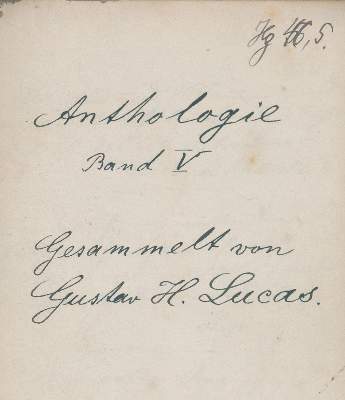 Hg 46,5.
Anthologie
Band V
Gesammelt von
Gustav H. Lucas.